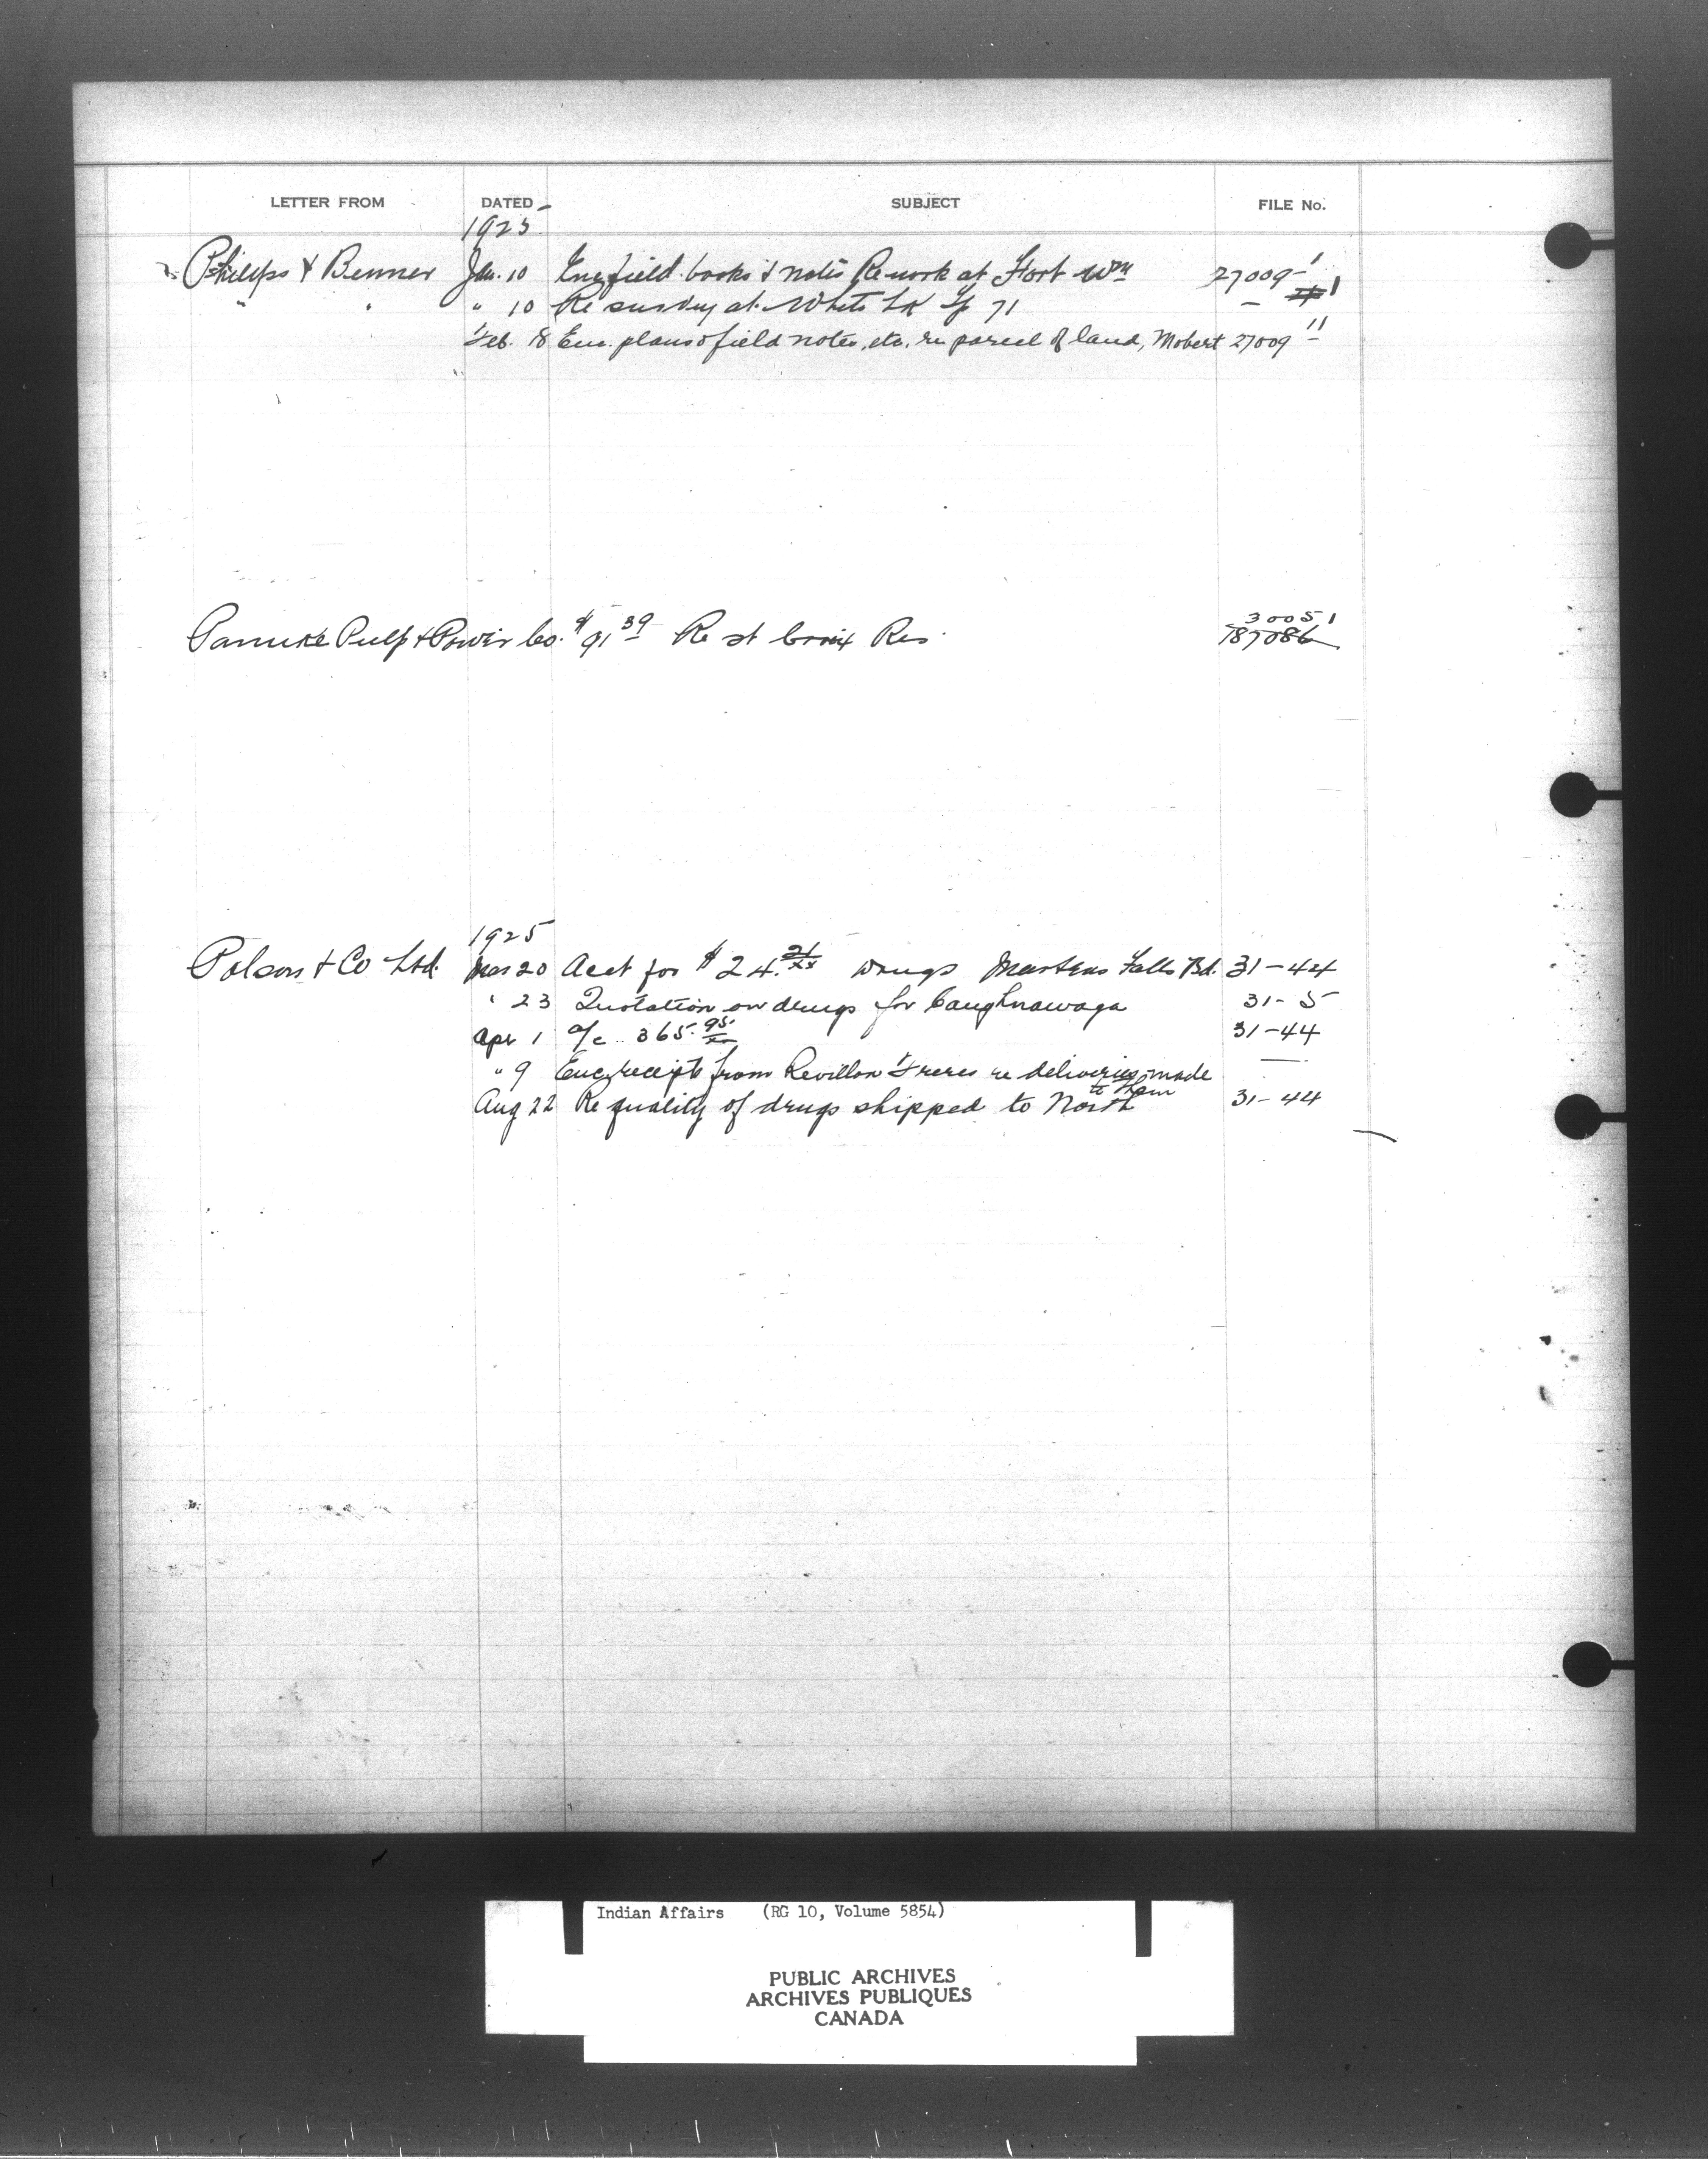 LETTER FROM DATED SUBJECT FILE No.
1925
Phillps & Benner Jan. 10 Enc field books & notes Re work at Fort Wm 27009-1
" " " 10 Re survey at White Lk Tp 71 — 1
Feb. 18 Enc. plans & field notes, etc. re parcel of land, Mobert 27009-11
30051
Panuke Pulp & Power Co. $91 39 Re St Croix Res. 787086
1925
Polson & Co Ltd. Mar 20 Acct for $24.21/xx Drugs Martens Falls Bd. 31-44
" 23 Quotation on drugs for Caughnawaga 31-5
Apr 1 a/c 365.95/xx 31-44
" 9 Enc receipts from Revillon Freres re deliveries made —
to them
Aug 22 Re quality of drugs shipped to North 31-44
Indian Affairs (RG 10, Volume 5854)
PUBLIC ARCHIVES
ARCHIVES PUBLIQUES
CANADA